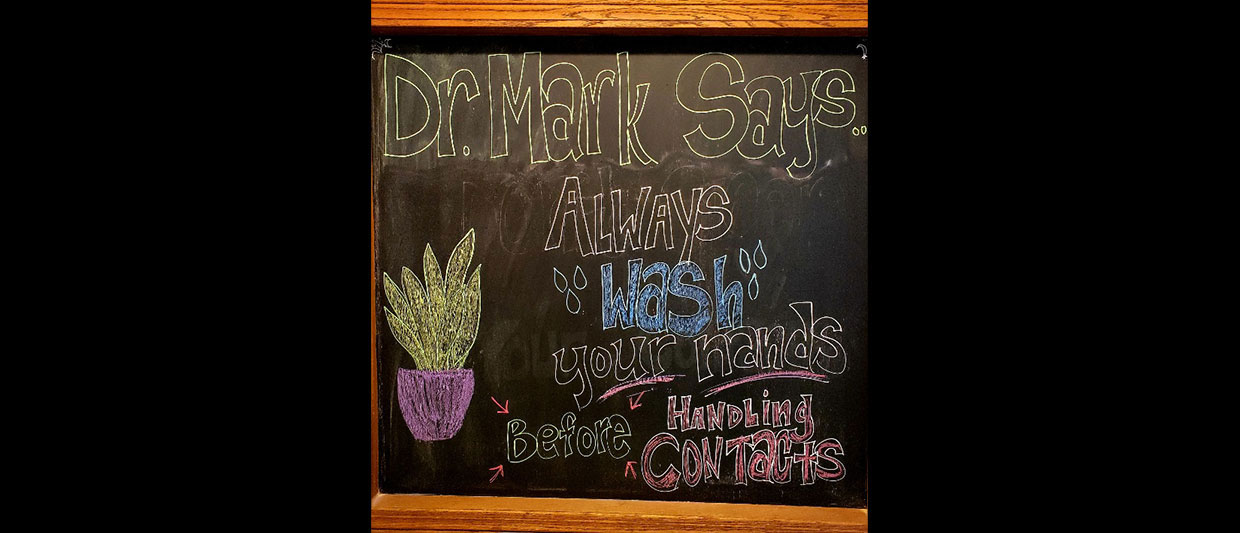 Dr. Mark Says..
ALWAYS
"wash"
your hands
Before HANDLING
CONTACTS